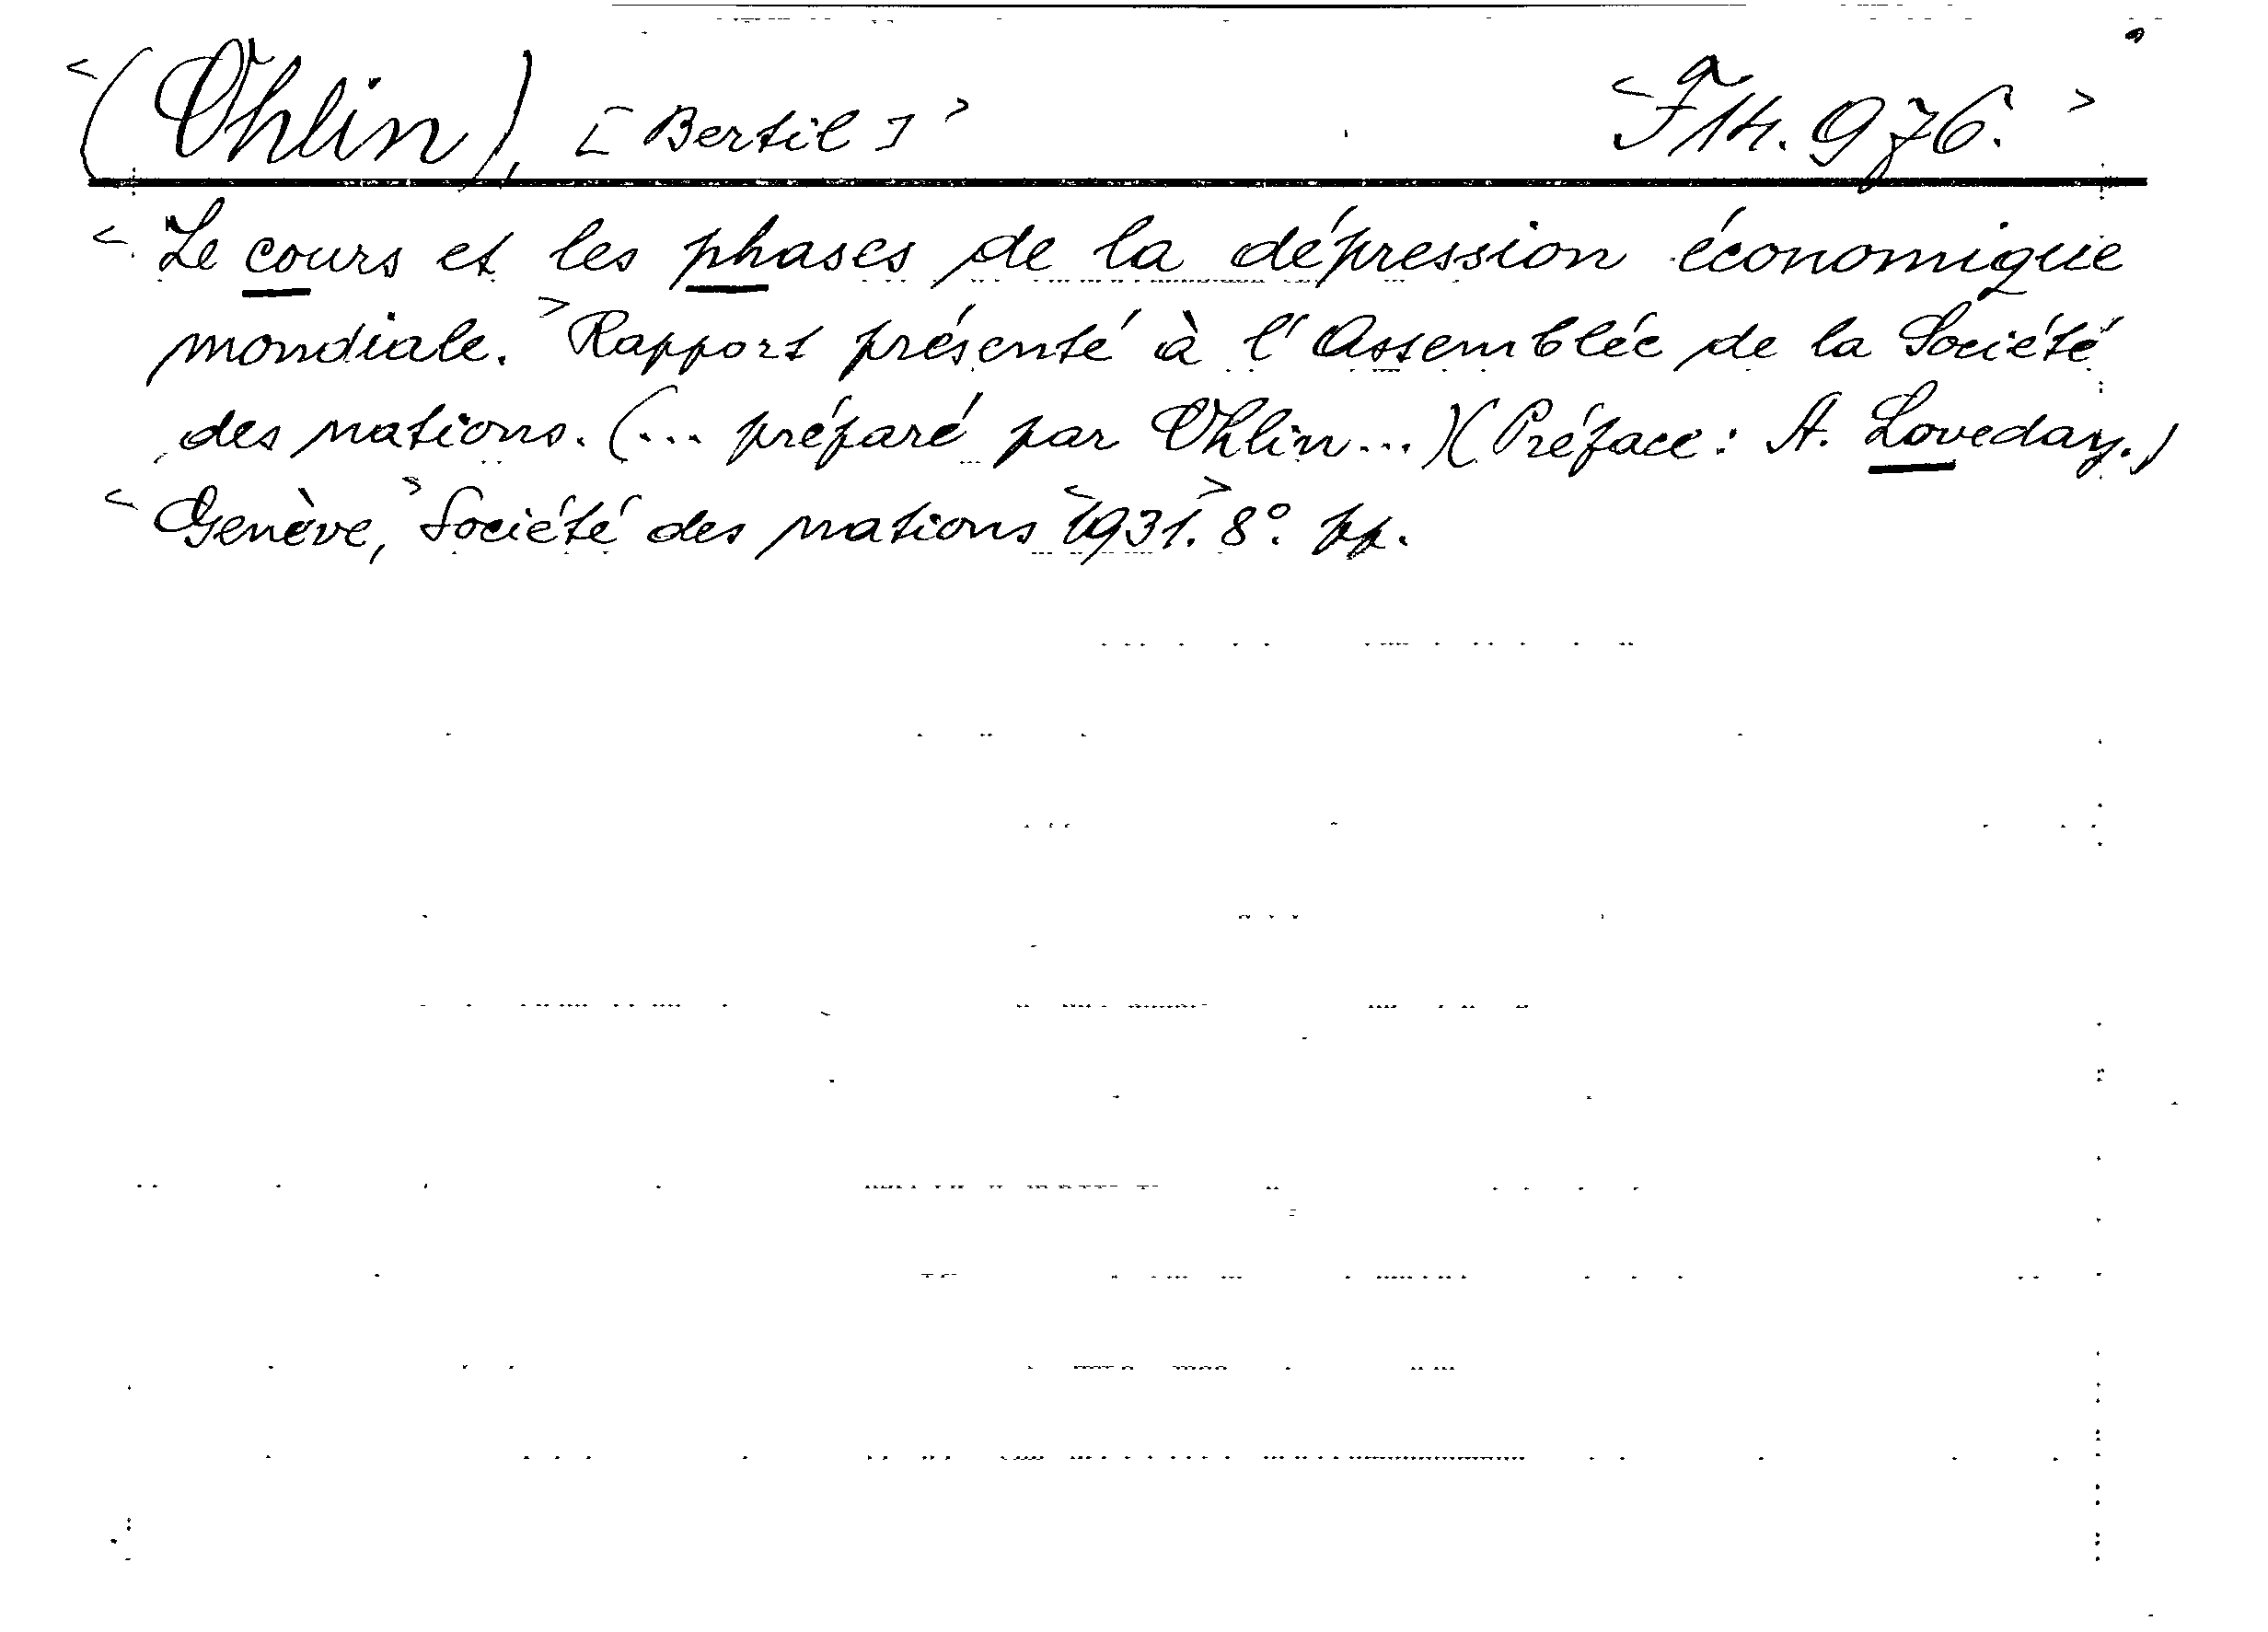 <(Ohlin), [Bertil]> <F14.976.>
<Le cours et les phases de la dépression économique
mondiale.> Rapport présenté à l'Assemblée de la Société
des nations. (... préparé par Ohlin...)(Préface: A. Loveday.)
<Genève,> Société des nations <1931.> 8°. pp.